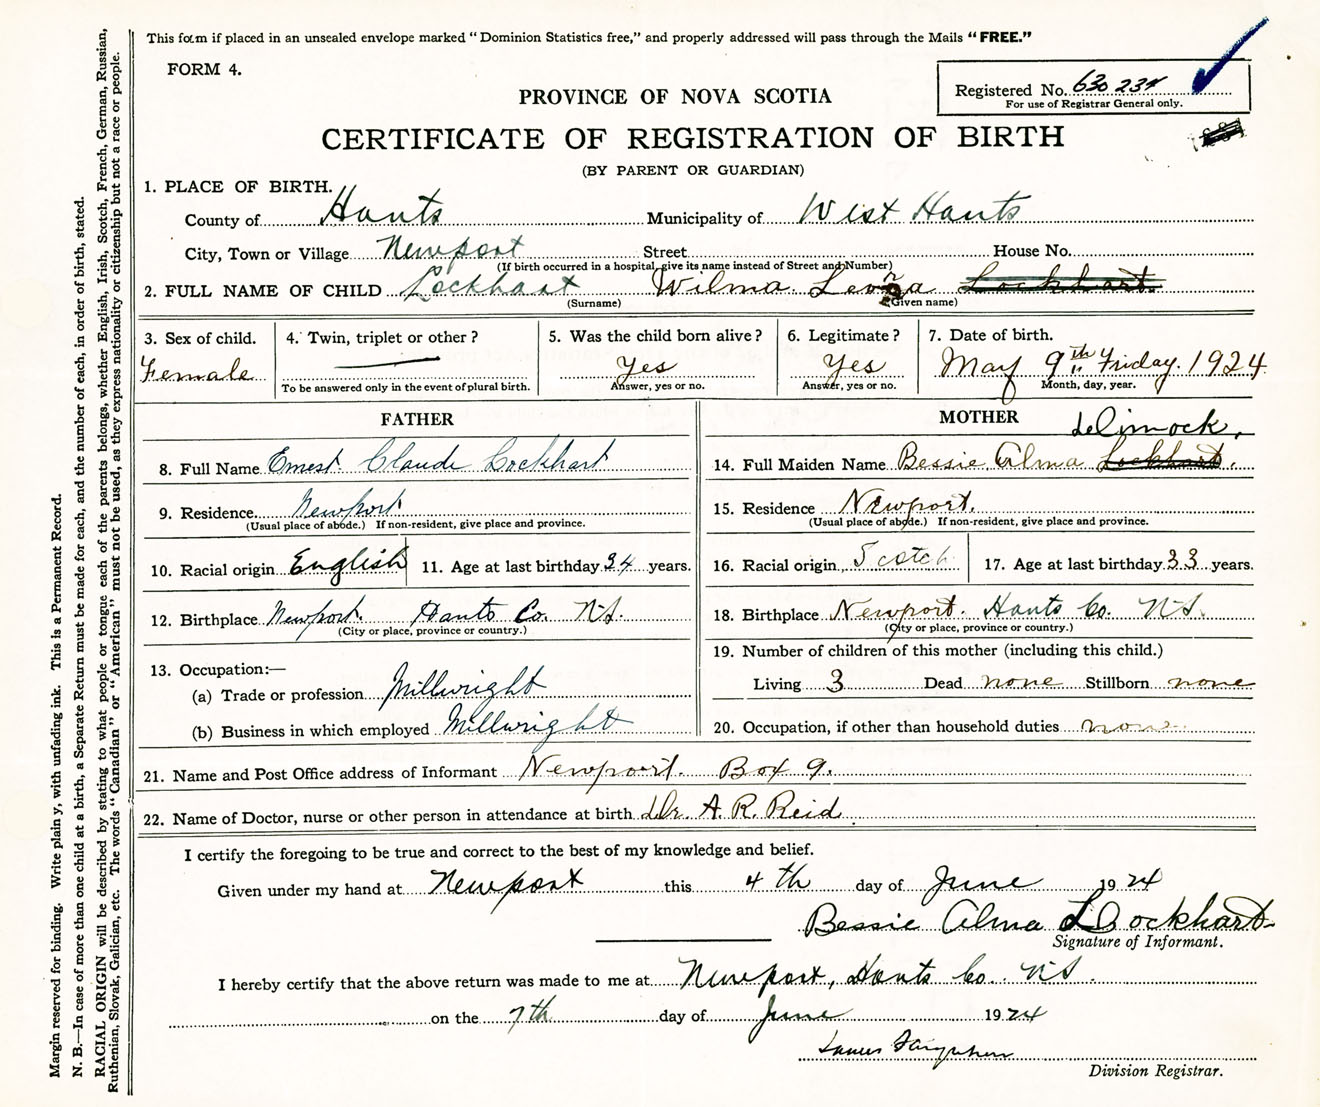 This form if placed in an unsealed envelope marked "Dominion Statistics free," and properly addressed will pass through the Mails "FREE."
FORM 4.
Registered No. 630 234
For use of Registrar General only.
PROVINCE OF NOVA SCOTIA
CERTIFICATE OF REGISTRATION OF BIRTH
(BY PARENT OR GUARDIAN)
1. PLACE OF BIRTH.
County of Hants Municipality of West Hants
City, Town or Village Newport Street House No.
(If birth occurred in a hospital, give its name instead of Street and Number)
2. FULL NAME OF CHILD Lockhart Wilma Leona Lockhart
(Surname) (Given name)
3. Sex of child. Female
4. Twin, triplet or other?
To be answered only in the event of plural birth.
5. Was the child born alive? Yes
Answer, yes or no.
6. Legitimate? Yes
Answer, yes or no.
7. Date of birth.
May 9th Friday. 1924
Month, day, year.
FATHER
8. Full Name Ernest Claude Lockhart
9. Residence Newport
(Usual place of abode.) If non-resident, give place and province.
10. Racial origin English 11. Age at last birthday 34 years.
12. Birthplace Newport. Hants Co. N.S.
(City or place, province or country.)
13. Occupation:—
(a) Trade or profession Millwright
(b) Business in which employed Millwright
MOTHER
14. Full Maiden Name Bessie Alma Lockhart.
15. Residence Newport.
(Usual place of abode.) If non-resident, give place and province.
16. Racial origin Scotch 17. Age at last birthday 33 years.
18. Birthplace Newport. Hants Co. N.S.
(City or place, province or country.)
19. Number of children of this mother (including this child.)
Living 3 Dead none Stillborn none
20. Occupation, if other than household duties none
21. Name and Post Office address of Informant Newport. Box 9.
22. Name of Doctor, nurse or other person in attendance at birth Dr. A. R. Reid
I certify the foregoing to be true and correct to the best of my knowledge and belief.
Given under my hand at Newport this 4th day of June 1924
Bessie Alma Lockhart
Signature of Informant.
I hereby certify that the above return was made to me at Newport, Hants Co. N.S.
on the 7th day of June 1924
James
Division Registrar.
Margin reserved for binding. Write plain y, with unfading ink. This is a Permanent Record.
N. B.—In case of more than one child at a birth, a Separate Return must be made for each, and the number of each, in order of birth, stated.
RACIAL ORIGIN will be described by stating to what people or tongue each of the parents belongs, whether English, Irish, Scotch, French, German, Russian,
Ruthenian, Slovak, Galician, etc. The words "Canadian" or "American" must not be used, as they express nationality or citizenship but not a race or people.